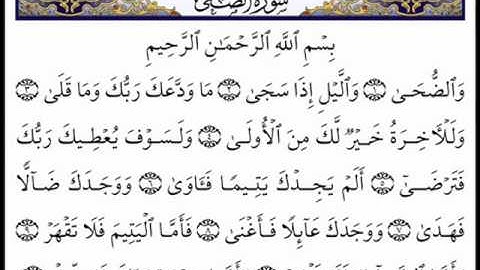 سورة الضحى
بِسْمِ ٱللَّهِ ٱلرَّحْمَـٰنِ ٱلرَّحِيمِ
وَٱلضُّحَىٰ ١ وَٱلَّيْلِ إِذَا سَجَىٰ ٢ مَا وَدَّعَكَ رَبُّكَ وَمَا قَلَىٰ ٣
وَلَلْـَٔاخِرَةُ خَيْرٌ لَّكَ مِنَ ٱلْأُولَىٰ ٤ وَلَسَوْفَ يُعْطِيكَ رَبُّكَ
فَتَرْضَىٰٓ ٥ أَلَمْ يَجِدْكَ يَتِيمًا فَـَٔاوَىٰ ٦ وَوَجَدَكَ ضَآلًّا
فَهَدَىٰ ٧ وَوَجَدَكَ عَآئِلًا فَأَغْنَىٰ ٨ فَأَمَّا ٱلْيَتِيمَ فَلَا تَقْهَرْ ٩